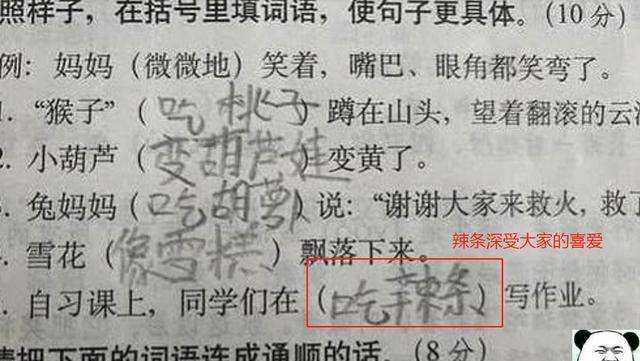 照样子，在括号里填词语，使句子更具体。(10分)
例：妈妈（微微地）笑着，嘴巴、眼角都笑弯了。
1. “猴子”（吃桃子）蹲在山头，望着翻滚的云海
2. 小葫芦（变葫芦娃）变黄了。
兔妈妈（吃胡萝）说：“谢谢大家来救火，救了
辣条深受大家的喜爱
雪花（像雪糕）飘落下来。
自习课上，同学们在（吃辣条）写作业。
把下面的词语连成通顺的话。(8分)